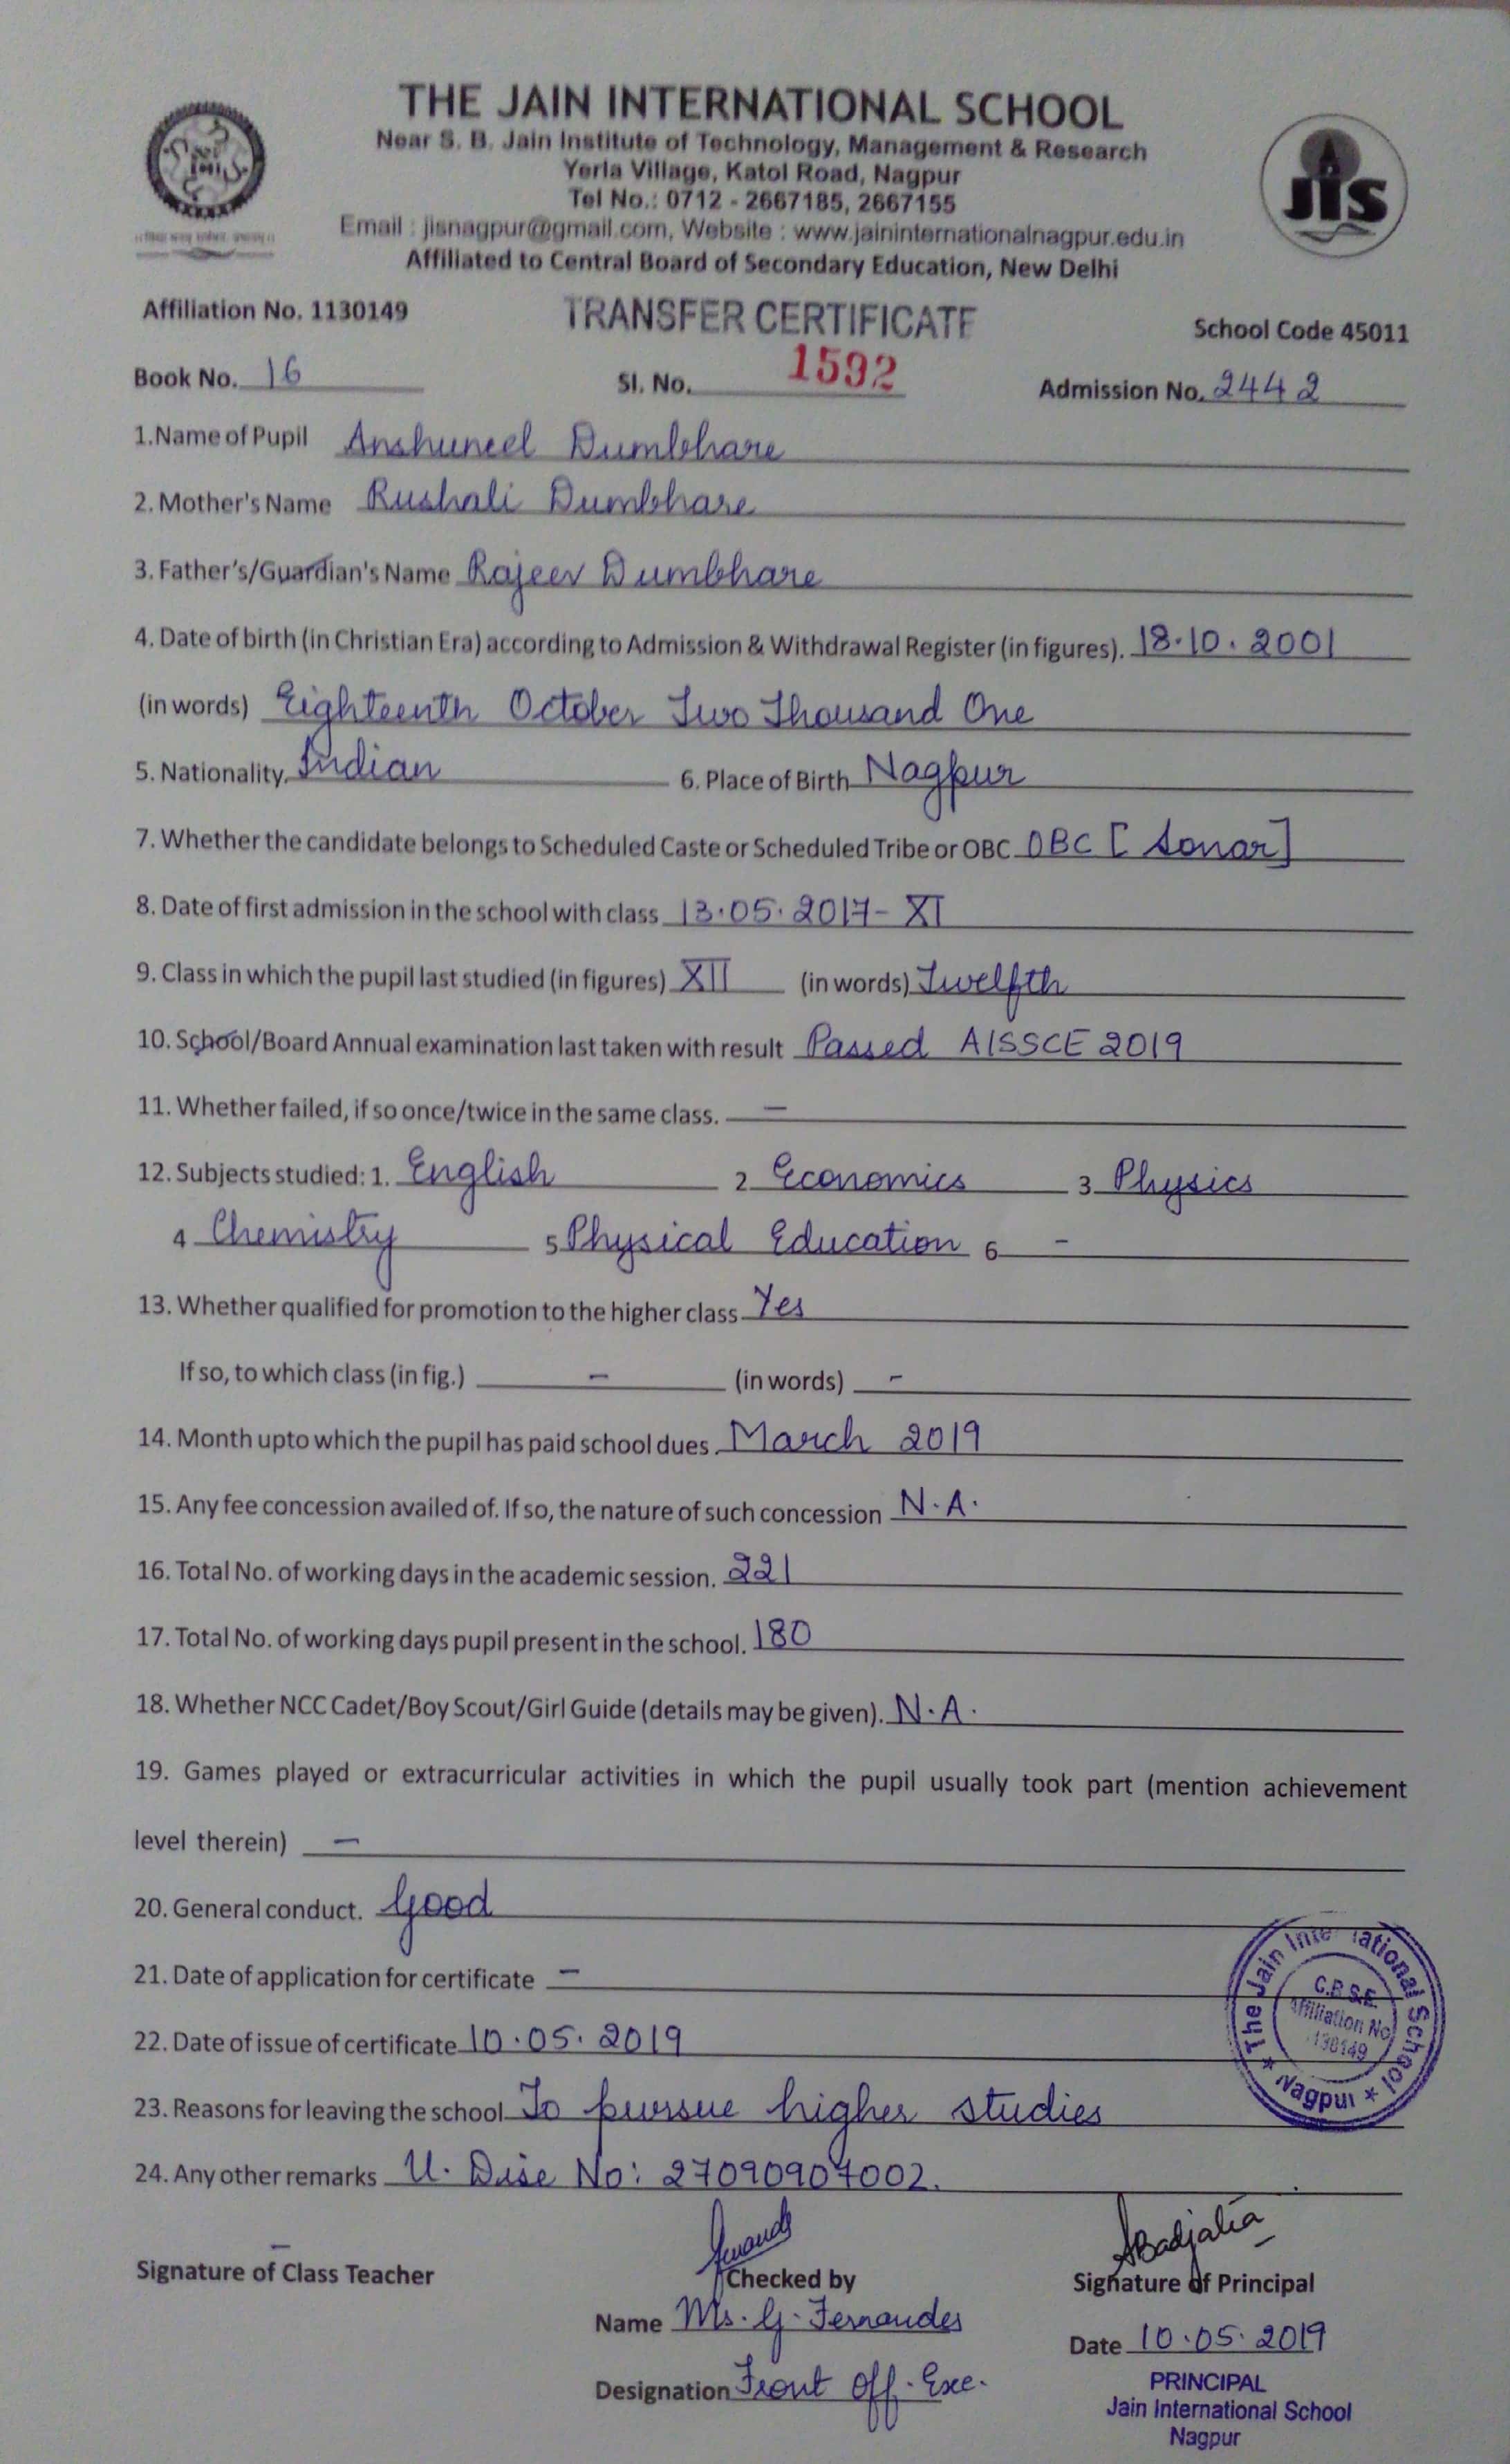 THE JAIN INTERNATIONAL SCHOOL
Near S. B. Jain Institute of Technology, Management & Research
Yerla Village, Katol Road, Nagpur
Tel No.: 0712 - 2667185, 2667155
Email : jisnagpur@gmail.com, Website : www.jaininternationalnagpur.edu.in
Affiliated to Central Board of Secondary Education, New Delhi
JIS
Affiliation No. 1130149 TRANSFER CERTIFICATE School Code 45011
Book No. 16 Sl. No. 1592 Admission No. 2442
1.Name of Pupil Anshuneel Dumbhare
2. Mother's Name Rushali Dumbhare
3. Father's/Guardian's Name Rajeev Dumbhare
4. Date of birth (in Christian Era) according to Admission & Withdrawal Register (in figures). 18.10.2001
(in words) Eighteenth October Two Thousand One
5. Nationality. Indian 6. Place of Birth Nagpur
7. Whether the candidate belongs to Scheduled Caste or Scheduled Tribe or OBC OBC [Sonar]
8. Date of first admission in the school with class 13.05.2017- XI
9. Class in which the pupil last studied (in figures) XII (in words) Twelfth
10. School/Board Annual examination last taken with result Passed AISSCE 2019
11. Whether failed, if so once/twice in the same class. –
12. Subjects studied: 1. English 2 Economics 3 Physics
4 Chemistry 5 Physical Education 6 -
13. Whether qualified for promotion to the higher class Yes
If so, to which class (in fig.) – (in words) -
14. Month upto which the pupil has paid school dues. March 2019
15. Any fee concession availed of. If so, the nature of such concession N.A.
16. Total No. of working days in the academic session. 221
17. Total No. of working days pupil present in the school. 180
18. Whether NCC Cadet/Boy Scout/Girl Guide (details may be given). N.A.
19. Games played or extracurricular activities in which the pupil usually took part (mention achievement
level therein) –
20. General conduct. Good
21. Date of application for certificate –
22. Date of issue of certificate 10.05.2019
23. Reasons for leaving the school To pursue higher studies
24. Any other remarks U. Dise No: 27090907002.
The Jain International School * Nagpur *
C.B.S.E.
Affiliation No
1130149
Signature of Class Teacher – Checked by Signature of Principal
Name Ms. G. Fernandes
Date 10.05.2019
Designation Front Off. Exe.
PRINCIPAL
Jain International School
Nagpur